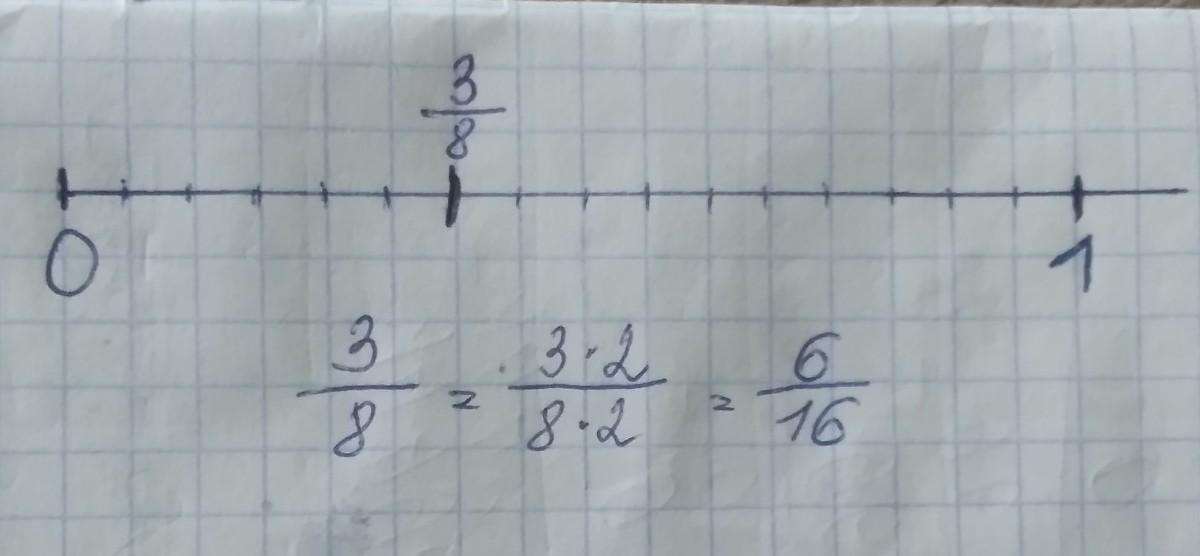 3/8
0 1
3/8 = 3·2/8·2 = 6/16